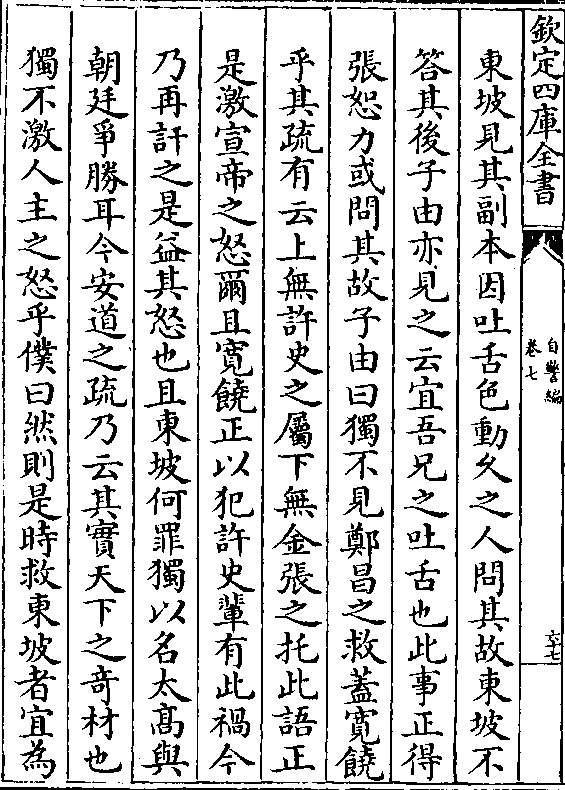 欽定四庫全書
自警編
卷七
六十七
東坡見其副本因吐舌色動久之人問其故東坡不
答其後子由亦見之云宜吾兄之吐舌也此事正得
張恕力或問其故子由曰獨不見鄭昌之救蓋寛饒
乎其疏有云上無許史之屬下無金張之托此語正
是激宣帝之怒爾且寛饒正以犯許史輩有此禍今
乃再訐之是益其怒也且東坡何罪獨以名太髙與
朝廷爭勝耳今安道之疏乃云其實天下之竒材也
獨不激人主之怒乎僕曰然則是時救東坡者宜為